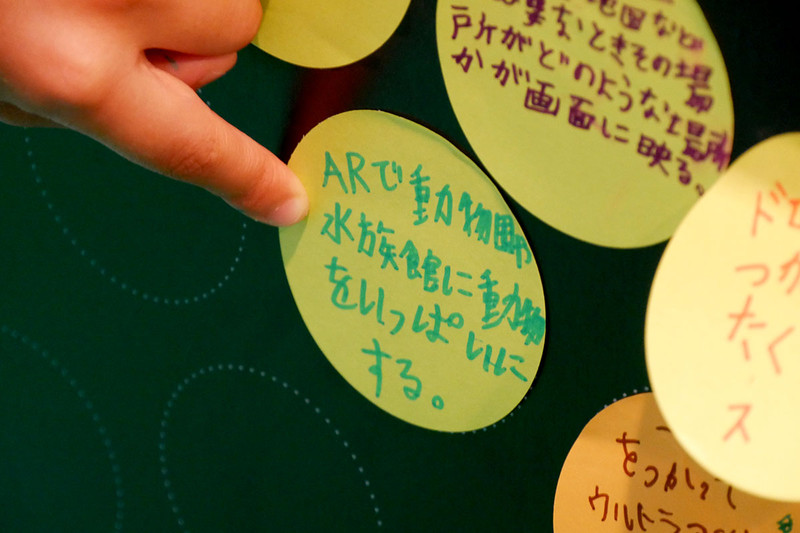 図など
なときその場
所がどのような場所
かが画面に映る。
ARで動物園や
水族館に動物
をいっぱいに
する。
をつかって
ウルトラ